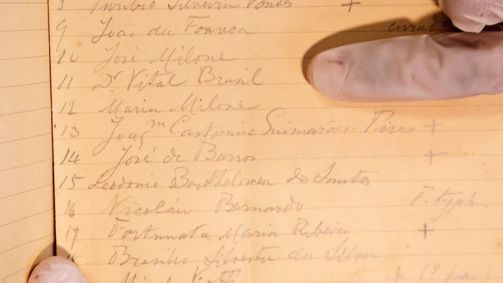 8 Silverio Pontes +
9 João da Fonseca
10 José Milone
11 Dr Vital Brasil
12 Maria Milone
13 Joaqm Guimarães Pires +
14 José de Barros +
15 Leodonio Bartholomeu dos Santos
16 Nicoláu Bernardo F. typh.
17 Fortunata Maria Ribeiro +
18 Braulio Silverio da Silva